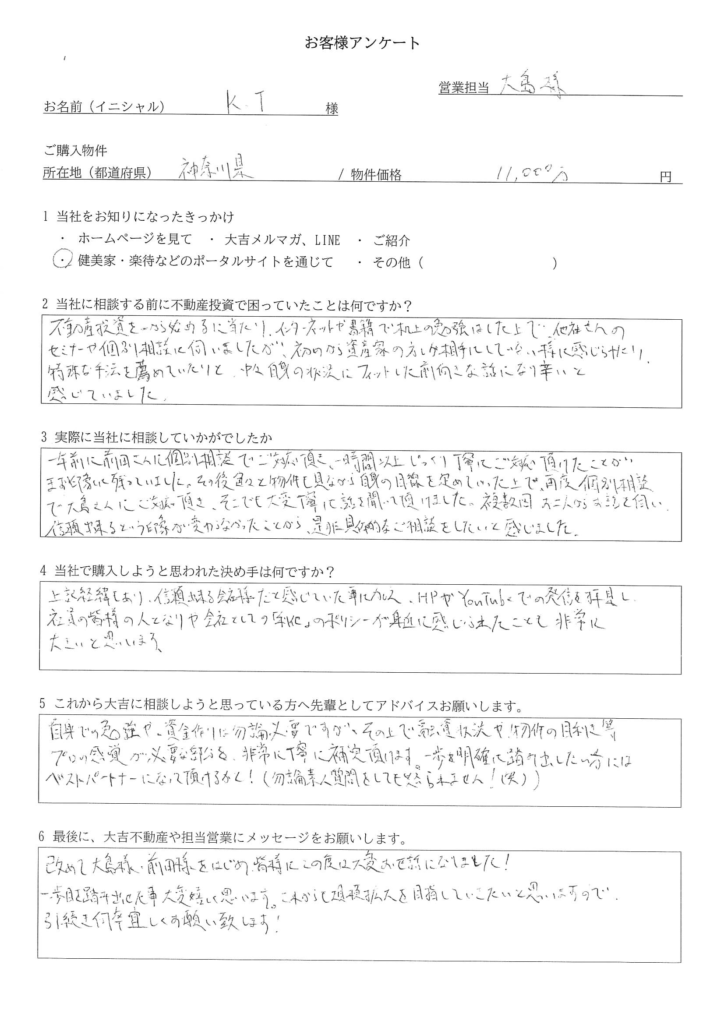 お客様アンケート
営業担当 大島様
お名前（イニシャル） K.T 様
ご購入物件
所在地（都道府県） 神奈川県 / 物件価格 11,000万 円
1 当社をお知りになったきっかけ
・ ホームページを見て ・ 大吉メルマガ、LINE ・ ご紹介
・ 健美家・楽待などのポータルサイトを通じて ・ その他（ ）
2 当社に相談する前に不動産投資で困っていたことは何ですか？
不動産投資を一から始めるに当たり、インターネットや書籍で机上の勉強はした上で、他社さんの
セミナーや個別相談に伺いましたが、初めから資産家の方しか相手にしていない様に感じられたり、
特殊な手法を薦めていたりと、中々自身の状況にフィットした前向きな話になり辛いと
感じていました。
3 実際に当社に相談していかがでしたか
一年前に前田さんに個別相談でご対応頂き、一時間以上じっくり丁寧にご対応頂けたことが
まず印象に残っていました。その後色々と物件も見ながら自身の目線を定めていった上で、再度個別相談
で大島さんにご対応頂き、そこでも大変丁寧に話を聞いて頂けました。複数回お二人からお話を伺い、
信頼出来るという印象が変わらなかったことから、是非具体的なご相談をしたいと感じました。
4 当社で購入しようと思われた決め手は何ですか？
上記経緯もあり、信頼出来る会社様だと感じていた事に加え、HPやYouTubeでの発信を拝見し、
社員の皆様の人となりや会社としての ポリシーが身近に感じる出来たことも非常に
大きいと思います。
5 これから大吉に相談しようと思っている方へ先輩としてアドバイスお願いします。
自身での勉強や、資金作りは勿論必要ですが、その上で融資状況や、物件の目利き等
プロの感覚が必要な部分を、非常に丁寧に補完頂けます。一歩を明確に踏み出したい方には
ベストパートナーになって頂けるかと！（勿論素人質問をしても怒られません！（笑））
6 最後に、大吉不動産や担当営業にメッセージをお願いします。
改めて大島様、前田様をはじめ、皆様にこの度は大変お世話になりました！
一歩目を踏み出せた事大変嬉しく思います。これからも規模拡大を目指していきたいと思いますので、
引続き何卒宜しくお願い致します！